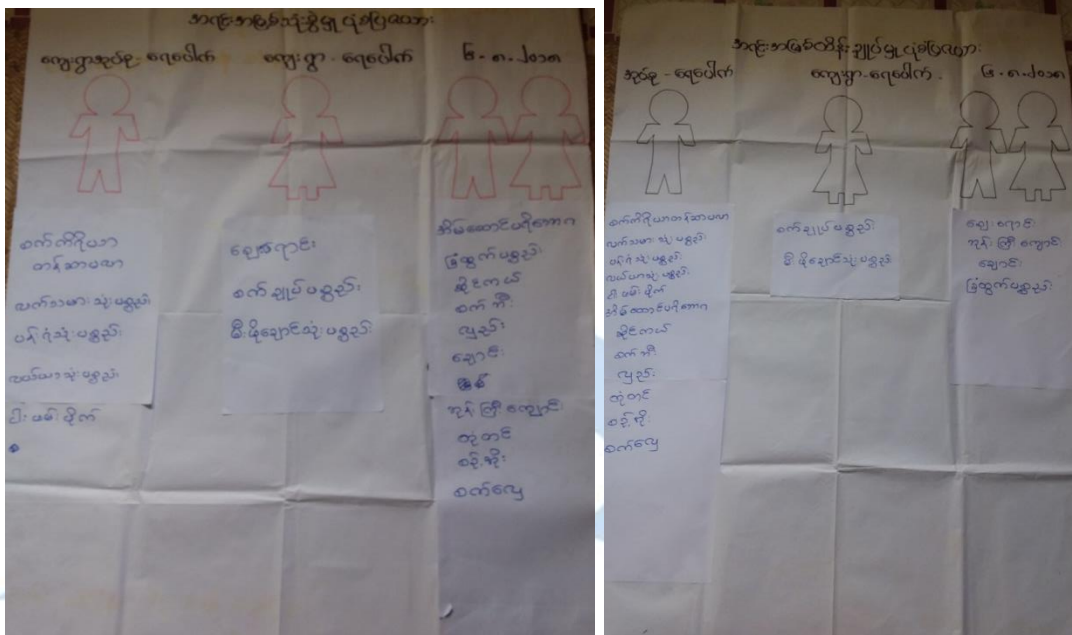 အရင်းအမြစ်သုံးစွဲမှုပုံစံပြဇယား
ကျေးရွာအုပ်စု - ရေပေါက် ကျေးရွာ - ရေပေါက် ၆-၈-၂၀၁၈
စက်ကိရိယာ
တန်ဆာပလာ
လက်သမားသုံးပစ္စည်း
ပန်းရံသုံးပစ္စည်း
လယ်ယာသုံးပစ္စည်း
ငါးဖမ်းပိုက်
ရွှေချောင်း
စက်ချုပ်ပစ္စည်း
မီးဖိုချောင်သုံးပစ္စည်း
အိမ်ထောင်ပရိဘောဂ
ခြံထွက်ပစ္စည်း
ဆိုင်ကယ်
စက်ဘီး
လှည်း
ချောင်း
မြစ်
ဘုန်းကြီးကျောင်း
တုံတင်
စဉ့်အိုး
စက်လှေ
အရင်းအမြစ်ထိန်းချုပ်မှုပုံစံပြဇယား
အုပ်စု - ရေပေါက် ကျေးရွာ - ရေပေါက် ၆-၈-၂၀၁၈
စက်ကိရိယာတန်ဆာပလာ
လက်သမားသုံးပစ္စည်း
ပန်းရံသုံးပစ္စည်း
လယ်ယာသုံးပစ္စည်း
ငါးဖမ်းပိုက်
အိမ်ထောင်ပရိဘောဂ
ဆိုင်ကယ်
စက်ဘီး
လှည်း
တုံတင်
စဉ့်အိုး
စက်လှေ
စက်ချုပ်ပစ္စည်း
မီးဖိုချောင်သုံးပစ္စည်း
ဘုန်းကြီးကျောင်း
ချောင်း
ခြံထွက်ပစ္စည်း